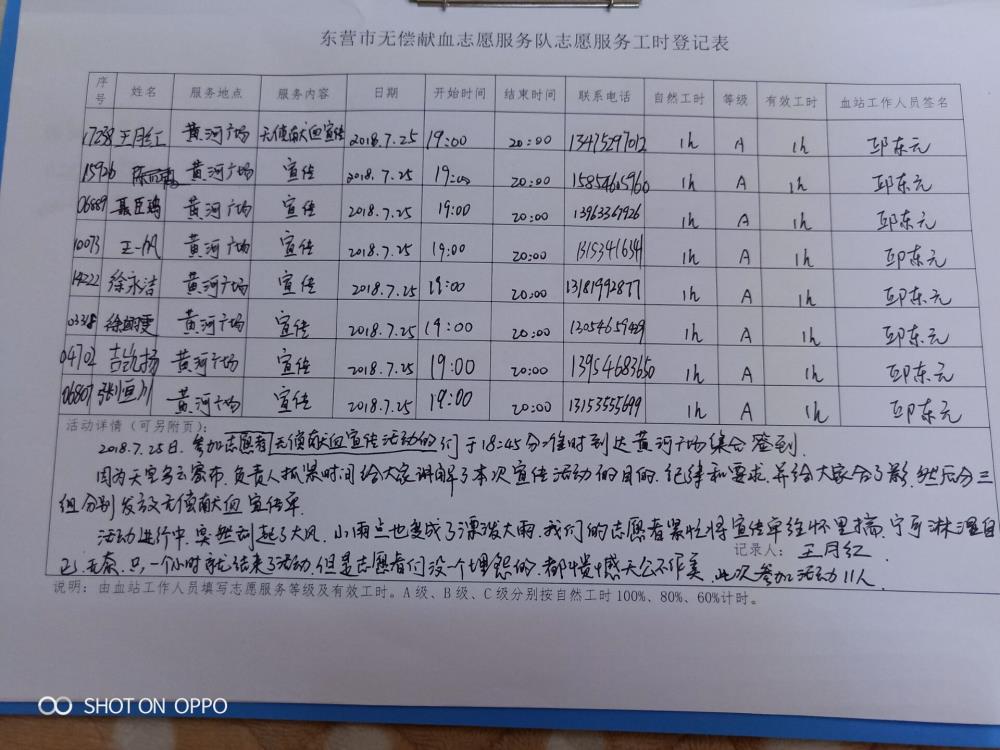 东营市无偿献血志愿服务队志愿服务工时登记表
序号 姓名 服务地点 服务内容 日期 开始时间 结束时间 联系电话 自然工时 等级 有效工时 血站工作人员签名
17238 王月红 黄河广场 无偿献血宣传 2018.7.25 19:00 20:00 13475297012 1h A 1h 邱东元
15926 陈 黄河广场 宣传 2018.7.25 19:00 20:00 15854615960 1h A 1h 邱东元
06889 聂臣鸿 黄河广场 宣传 2018.7.25 19:00 20:00 13963367926 1h A 1h 邱东元
10073 王一帆 黄河广场 宣传 2018.7.25 19:00 20:00 1h A 1h 邱东元
14222 徐永洁 黄河广场 宣传 2018.7.25 19:00 20:00 13181992877 1h A 1h 邱东元
徐 黄河广场 宣传 2018.7.25 19:00 20:00 1h A 1h 邱东元
04702 吉凯扬 黄河广场 宣传 2018.7.25 19:00 20:00 13954683650 1h A 1h 邱东元
06807 张恒川 黄河广场 宣传 2018.7.25 19:00 20:00 13153555699 1h A 1h 邱东元
活动详情（可另附页）：
2018.7.25日.参加志愿者无偿献血宣传活动的们于18:45分准时到达黄河广场集合签到.
因为天空乌云密布,负责人抓紧时间给大家讲解了本次宣传活动的目的.纪律和要求.并给大家合了影.然后分三
组分别发放无偿献血宣传单.
活动进行中.突然刮起了大风.小雨点也变成了漂泼大雨.我们的志愿者紧忙将宣传单往怀里揣.宁可淋湿自
己.无奈.只一个小时就结束了活动.但是志愿者们没一个埋怨的.都愤憾天公不作美.此次参加活动11人
记录人：王月红
说明：由血站工作人员填写志愿服务等级及有效工时。A级、B级、C级分别按自然工时100%、80%、60%计时。
SHOT ON OPPO